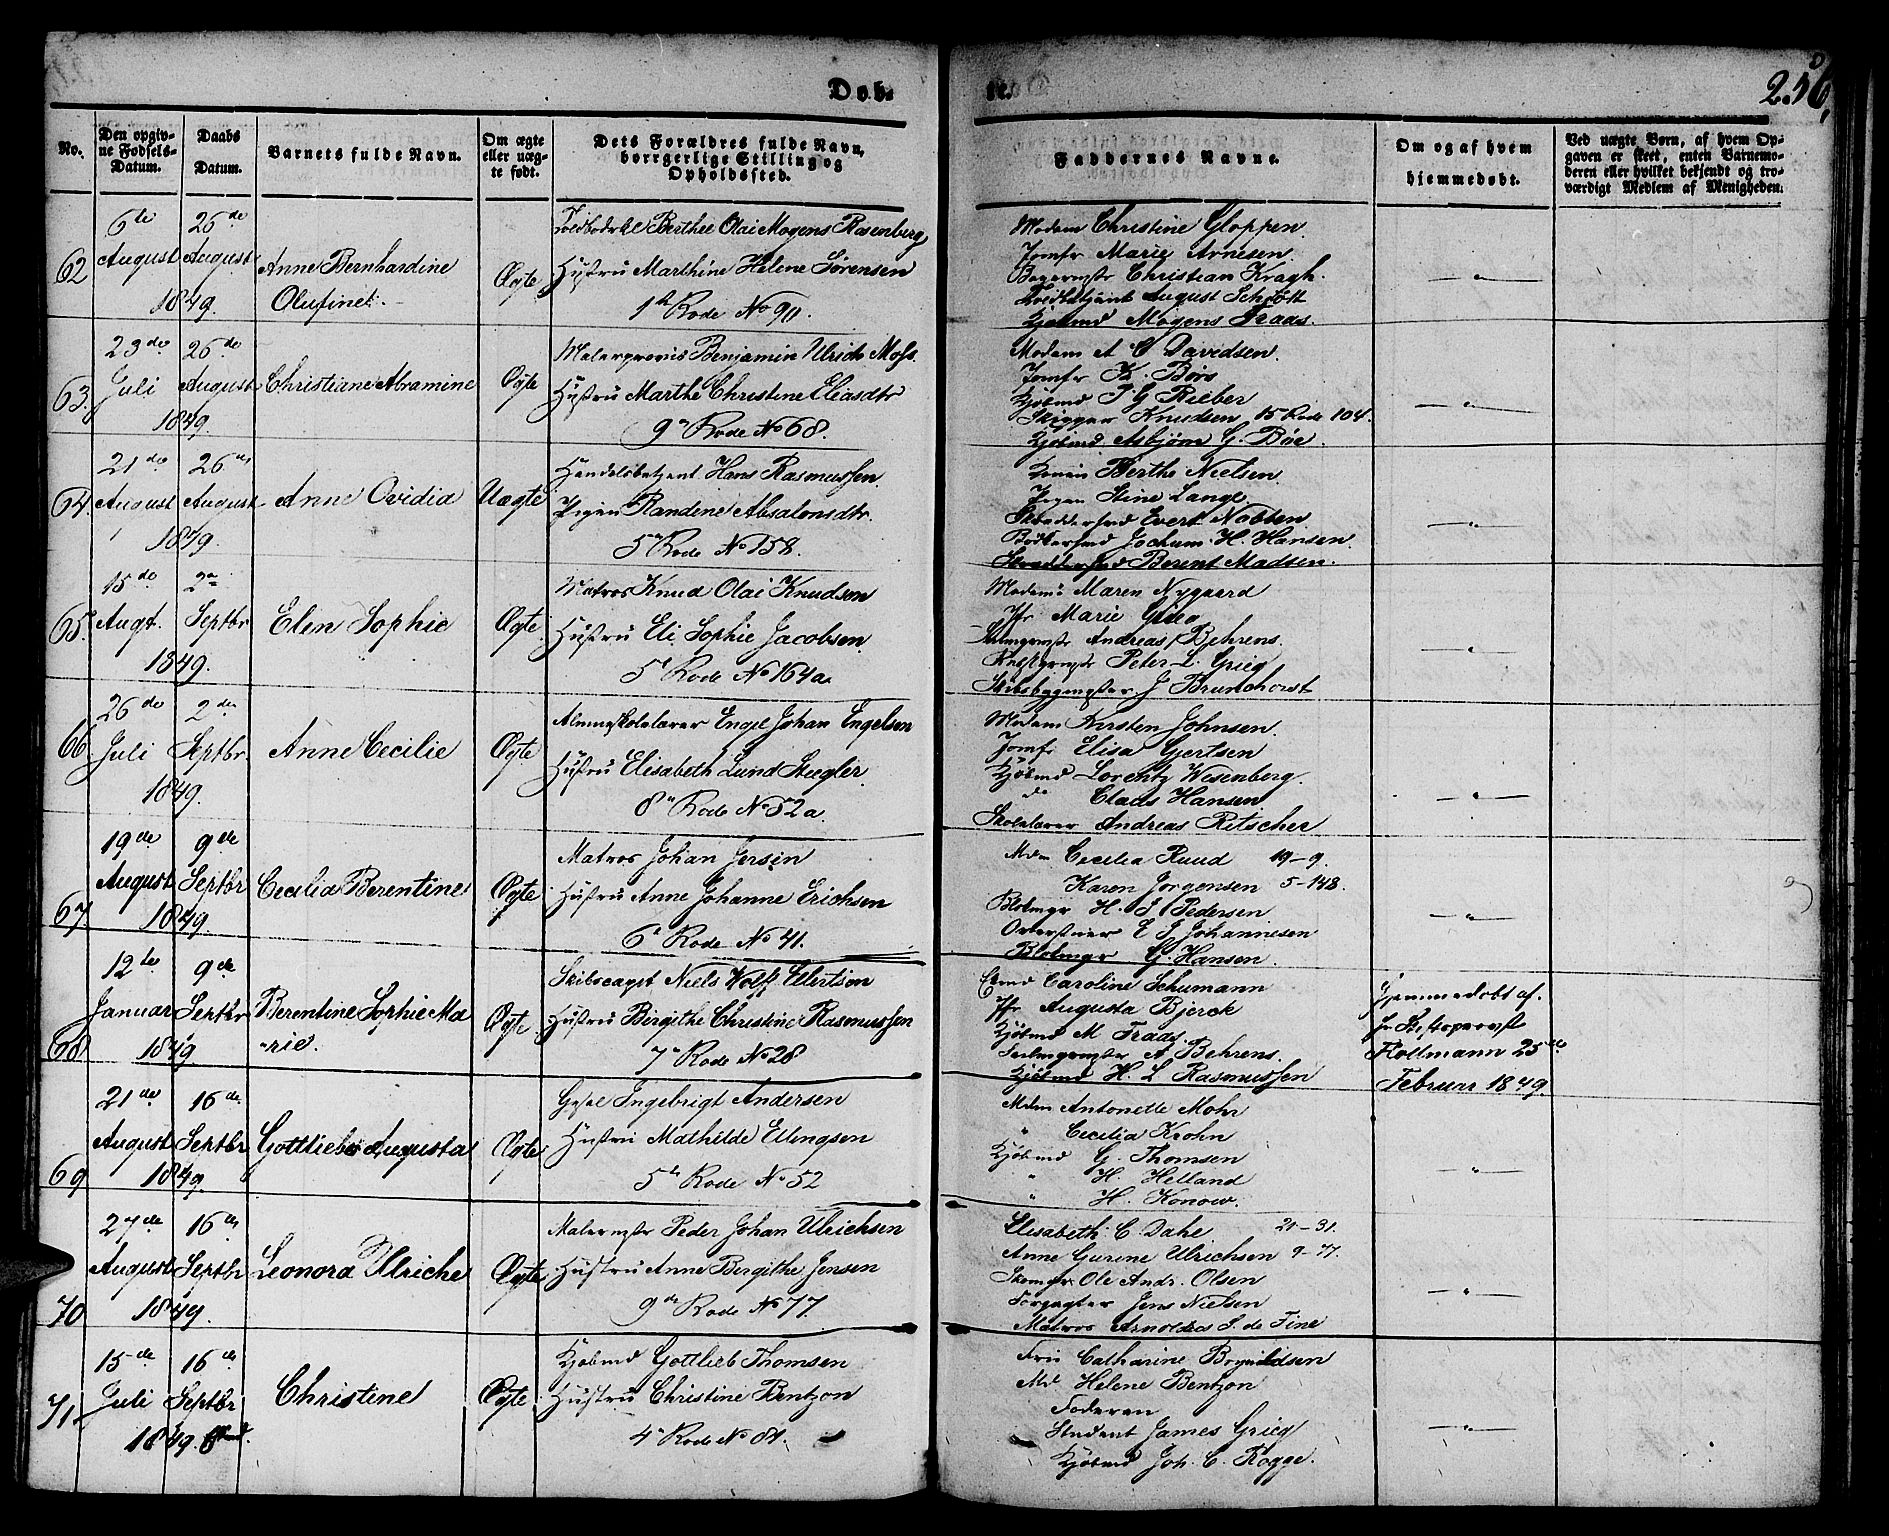 Døb- te. 256
No.
Den opgiv-
ne Fødsels-
Datum.
Daabs
Datum.
Barnets fulde Navn.
Om ægte
eller uæg-
te født.
Dets Forældres fulde Navn,
borgerlige Stilling og
Opholdssted.
Faddernes Navne.
Om og af hvem
hjemmedøbt.
Ved uægte Børn, af hvem Op-
gaven er skeet, enten Barnemo-
deren eller hvilket bekjendt og tro-
værdigt Medlem af Menigheden.
62
6te August 1849.
26de August
Anne Bernhardine
Olufine
Ægte
Berthel Olai Mogens Rosenberg
Hustru Marthine Helene Sørensen
1ste Rode No 90.
Madam Christine Gloppen
Jomfr Marie Arnesen
Bagermstr Christian Kragh.
Toldbetjent August Schiøtt
Kjøbmd Mogens Traas.
63.
23de Juli 1849.
26de August
Christiane Abramine
Ægte
Benjamin Ulrich Moss.
Hustru Marthe Christine Eliasdtr
9de Rode No 68.
Madam A C Davidsen.
Jomfr K. Børs
Kjøbmd P G Rieber
Skipper Knudsen 15 Rode 104.
Kjøbmd Asbjørn G. Bøe.
64.
21de August 1849.
26de August
Anne Ovidia
Uægte
Handelsbetjent Hans Rasmussen.
Pigen Randine Absalonsdtr.
5te Rode No 158.
Konen Berthe Nielsen
Pigen Stine Lange
Skreddersvd Evert Nobben
Bødkersvd Jochum H. Hansen.
Skreddersvd Berent Madsen.
65.
15de Augt. 1849.
2den Septbr
Elen Sophie
Ægte.
Matros Knud Olai Knudsen
Hustru Eli Sophie Jacobsen
5te Rode No 164a
Madame Maren Nygaard
Jfr Marie Grieg
Andreas Behrens.
Peter L. Grieg
Skibsbygmester J Brunchorst
66
26de Juli 1849.
2den Septbr
Anne Cecilie
Ægte
Almueskolelærer Engel Johan Engelsen
Hustru Elisabeth Lund Stegler
8de Rode No 52a.
Madam Kirsten Johnsen.
Jomfr Elisa Gjertsen
Kjøbmd Lorentz Wesenberg.
do Claus Hansen
Skolelærer Andreas Ritscher
67.
19de August 1849.
9de Septbr
Cecilia Berentine
Ægte
Matros Johan Jersin
Hustru Anne Johanne Erichsen
6te Rode No 41.
Mdm Cecilia Ruud 19-9.
Karen Jørgensen 5-148.
H. J Pedersen
E J Johannesen
G. Hansen.
68
12te Januar 1849
9de Septbr
Berentine Sophie Ma
-rie.
Ægte
Skibscapt Niels Wolff Ellertsen
Hustru Birgithe Christine Rasmussen
7de Rode No 28
Caroline Schumann
Jfr Augusta Bjerck
Kjøbmd M Traas.
A Behrens.
Kjøbmd H. L Rasmussen
Hjemmedøbt af
Hr Stiftsprovst
Holtmann 25de
Februar 1849.
69
21de August 1849.
16de Septbr
Gottliebe Augusta
Ægte
Ingebrigt Andersen
Hustru Mathilde Ellingsen
5te Rode No 52
Mdm Antonette Mohr
" Cecilia Krohn
Kjøbmd G. Thomsen
" H. Helland
" H. Konow.
70
27de August 1849.
16de Septbr
Leonora Ulriche
Ægte
Malermstr Peder Johan Ulrichsen
Hustru Anne Birgithe Jensen
9de Rode No 77.
Elisabeth C. Dahl 21-31.
Anne Gurine Ulrichsen 9-77.
Ole Andr. Olsen
Forpagter Jens Nielsen
Matros Arnoldus S. de Fine
71
15de Juli 1849.
16de Septbr
Christine
Ægte
Kjøbmd Gottlieb Thomsen
Hustru Christine Bentzon
4de Rode No 81.
Fru Catharine Brynildsen
Md Helene Bentzon
Faderen
Student James Grieg
Kjøbmd Joh. C. Rogge.